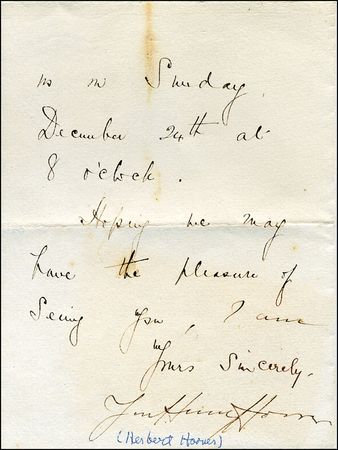 us on Sunday,
December 24th at
8 o'clock.
Hoping we may
have the pleasure of
seeing you, I am
Yours Sincerely,
Lou Henry Hoover
(Herbert Hoover)